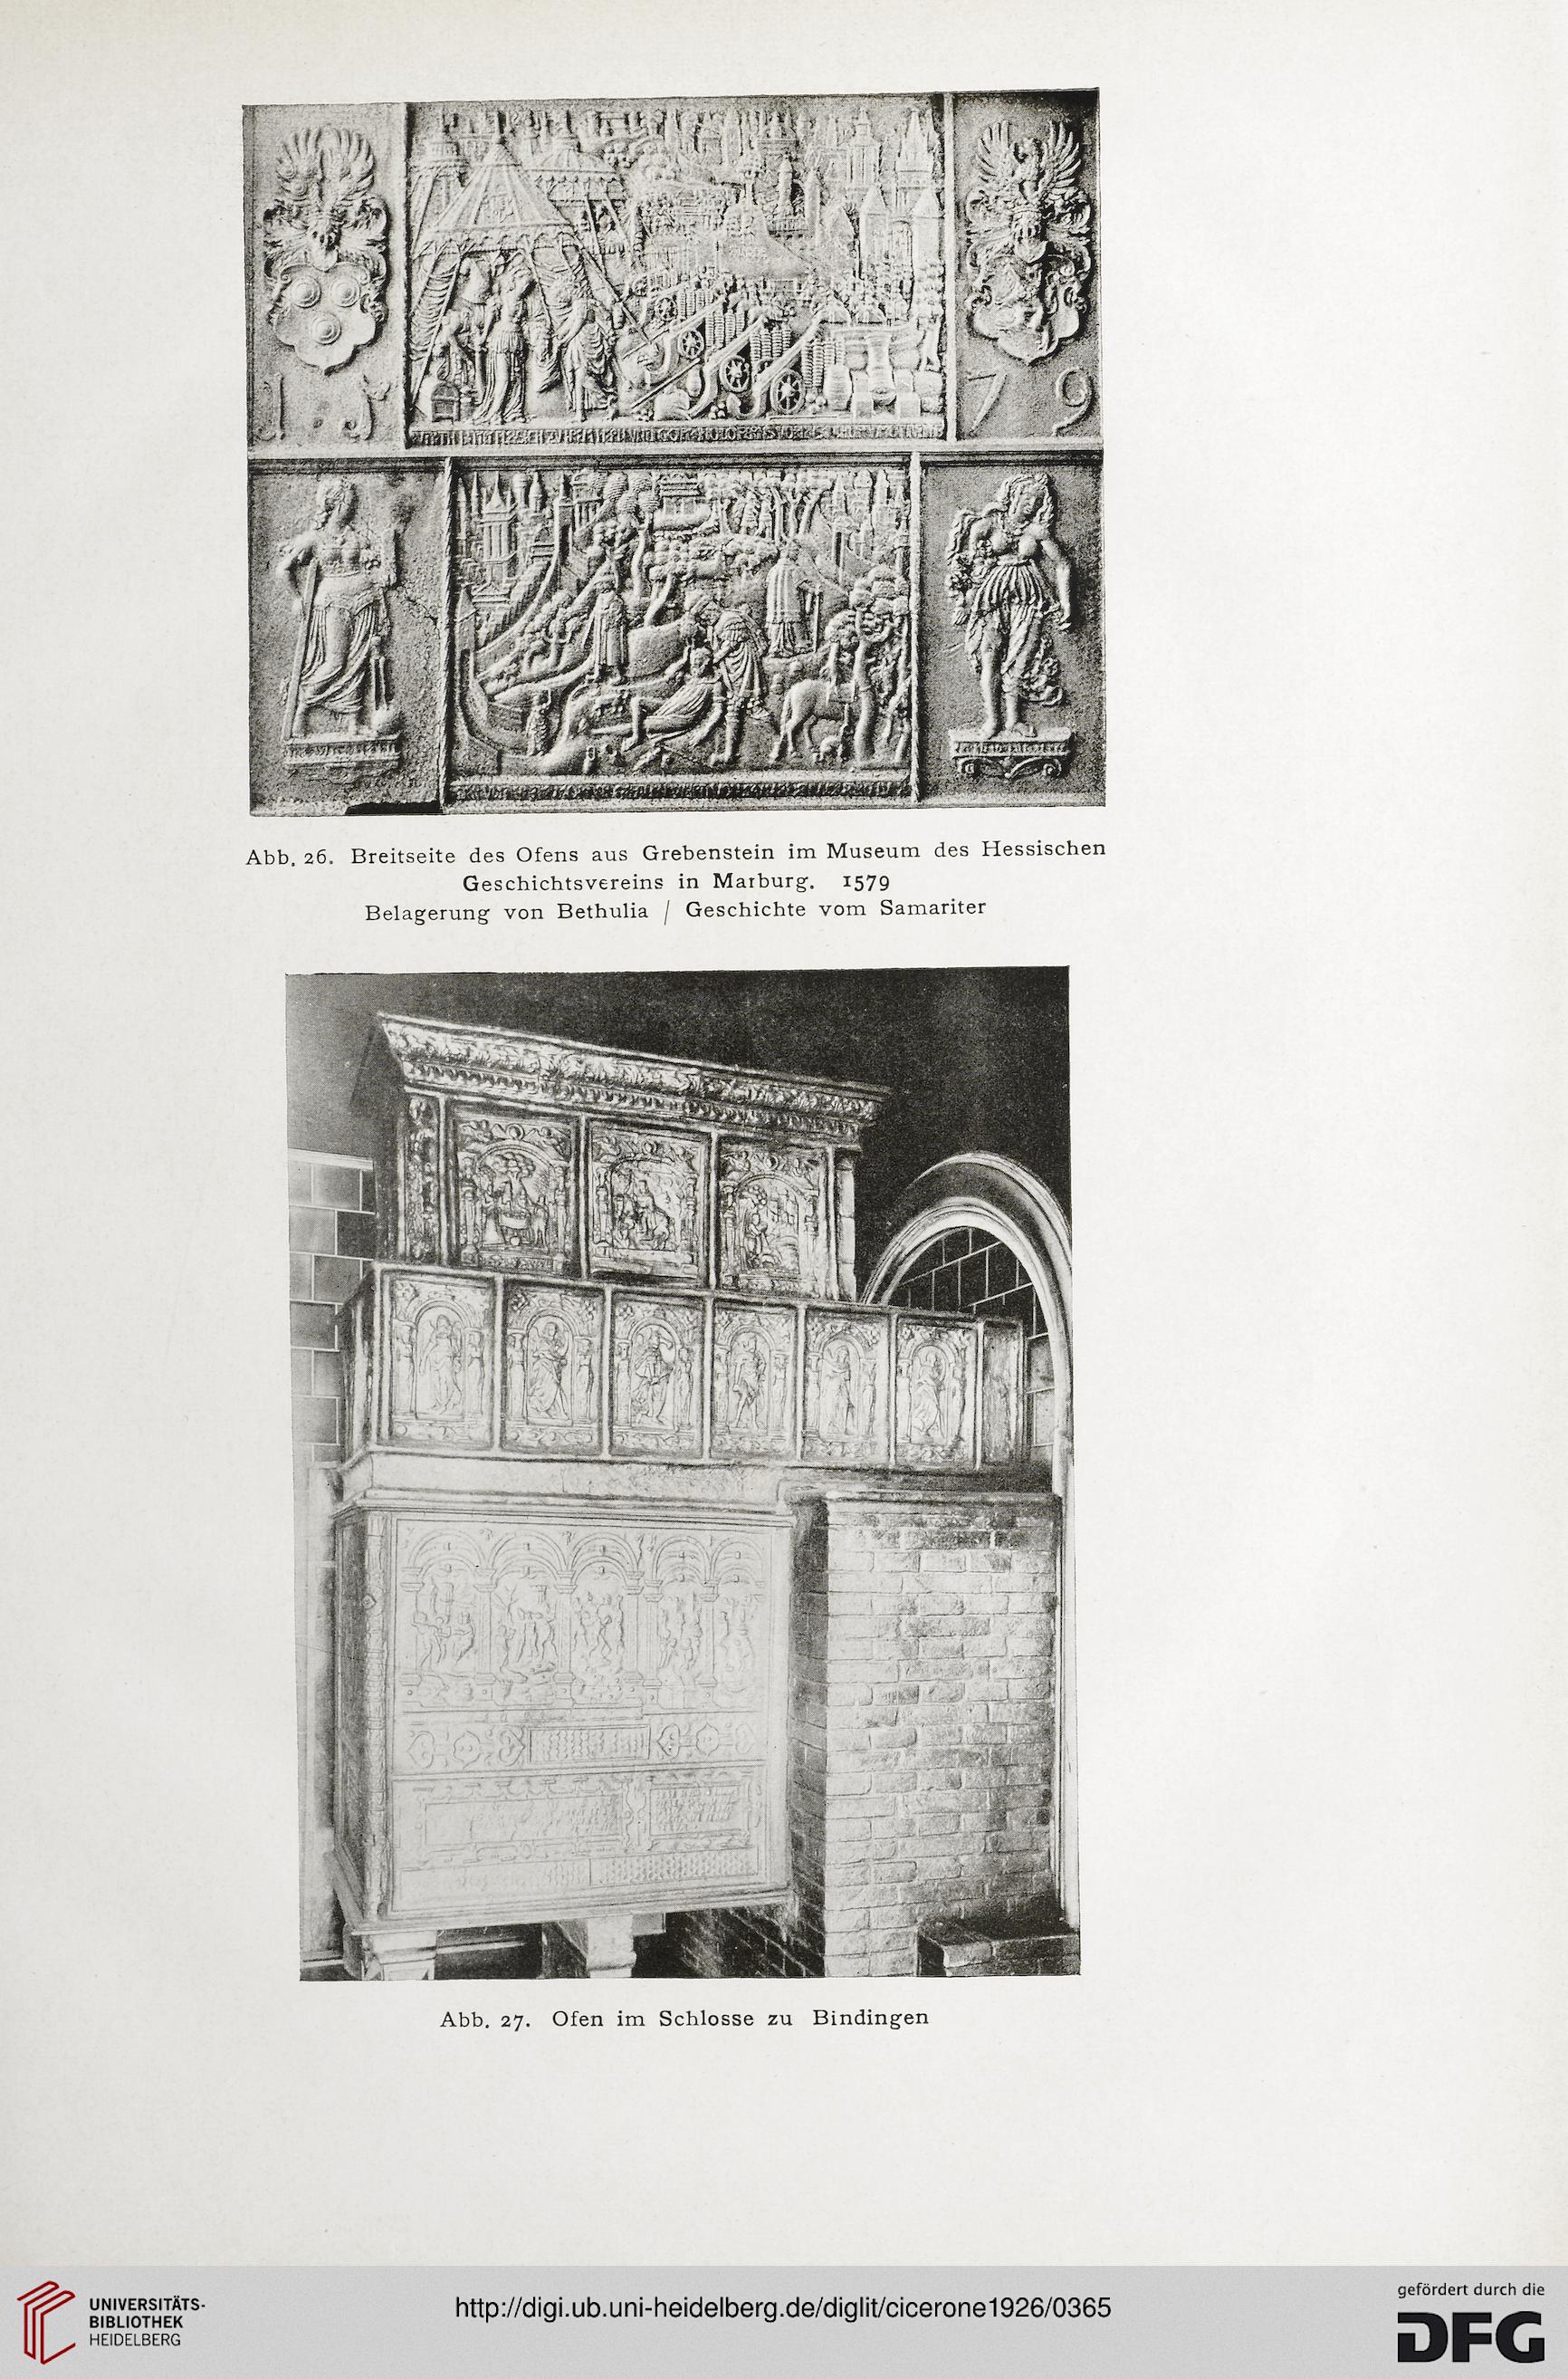 1 5 7 9
Abb. 26. Breitseite des Ofens aus Grebenstein im Museum des Hessischen
Geschichtsvereins in Marburg. 1579
Belagerung von Bethulia / Geschichte vom Samariter
Abb. 27. Ofen im Schlosse zu Bindingen
UNIVERSITÄTS-
BIBLIOTHEK
HEIDELBERG
http://digi.ub.uni-heidelberg.de/diglit/cicerone1926/0365
gefördert durch die
DFG